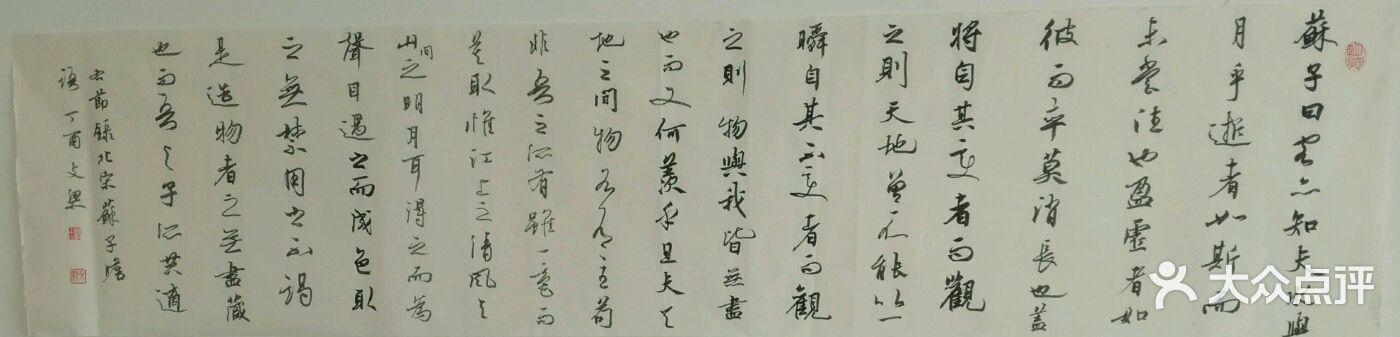 蘇子曰客亦知夫水與
月乎逝者如斯而
未嘗往也盈虛者如
彼而卒莫消長也蓋
將自其變者而觀
之則天地曾不能以一
瞬自其不變者而觀
之則物與我皆無盡
也而又何羨乎且夫天
地之間物各有主苟
非吾之所有雖一毫而
莫取惟江上之清風與
山間之明月耳得之而為
聲目遇之而成色取
之無禁用之不竭
是造物者之無盡藏
也而吾與子所共適
右節錄北宋蘇子瞻
語丁酉文
大众点评